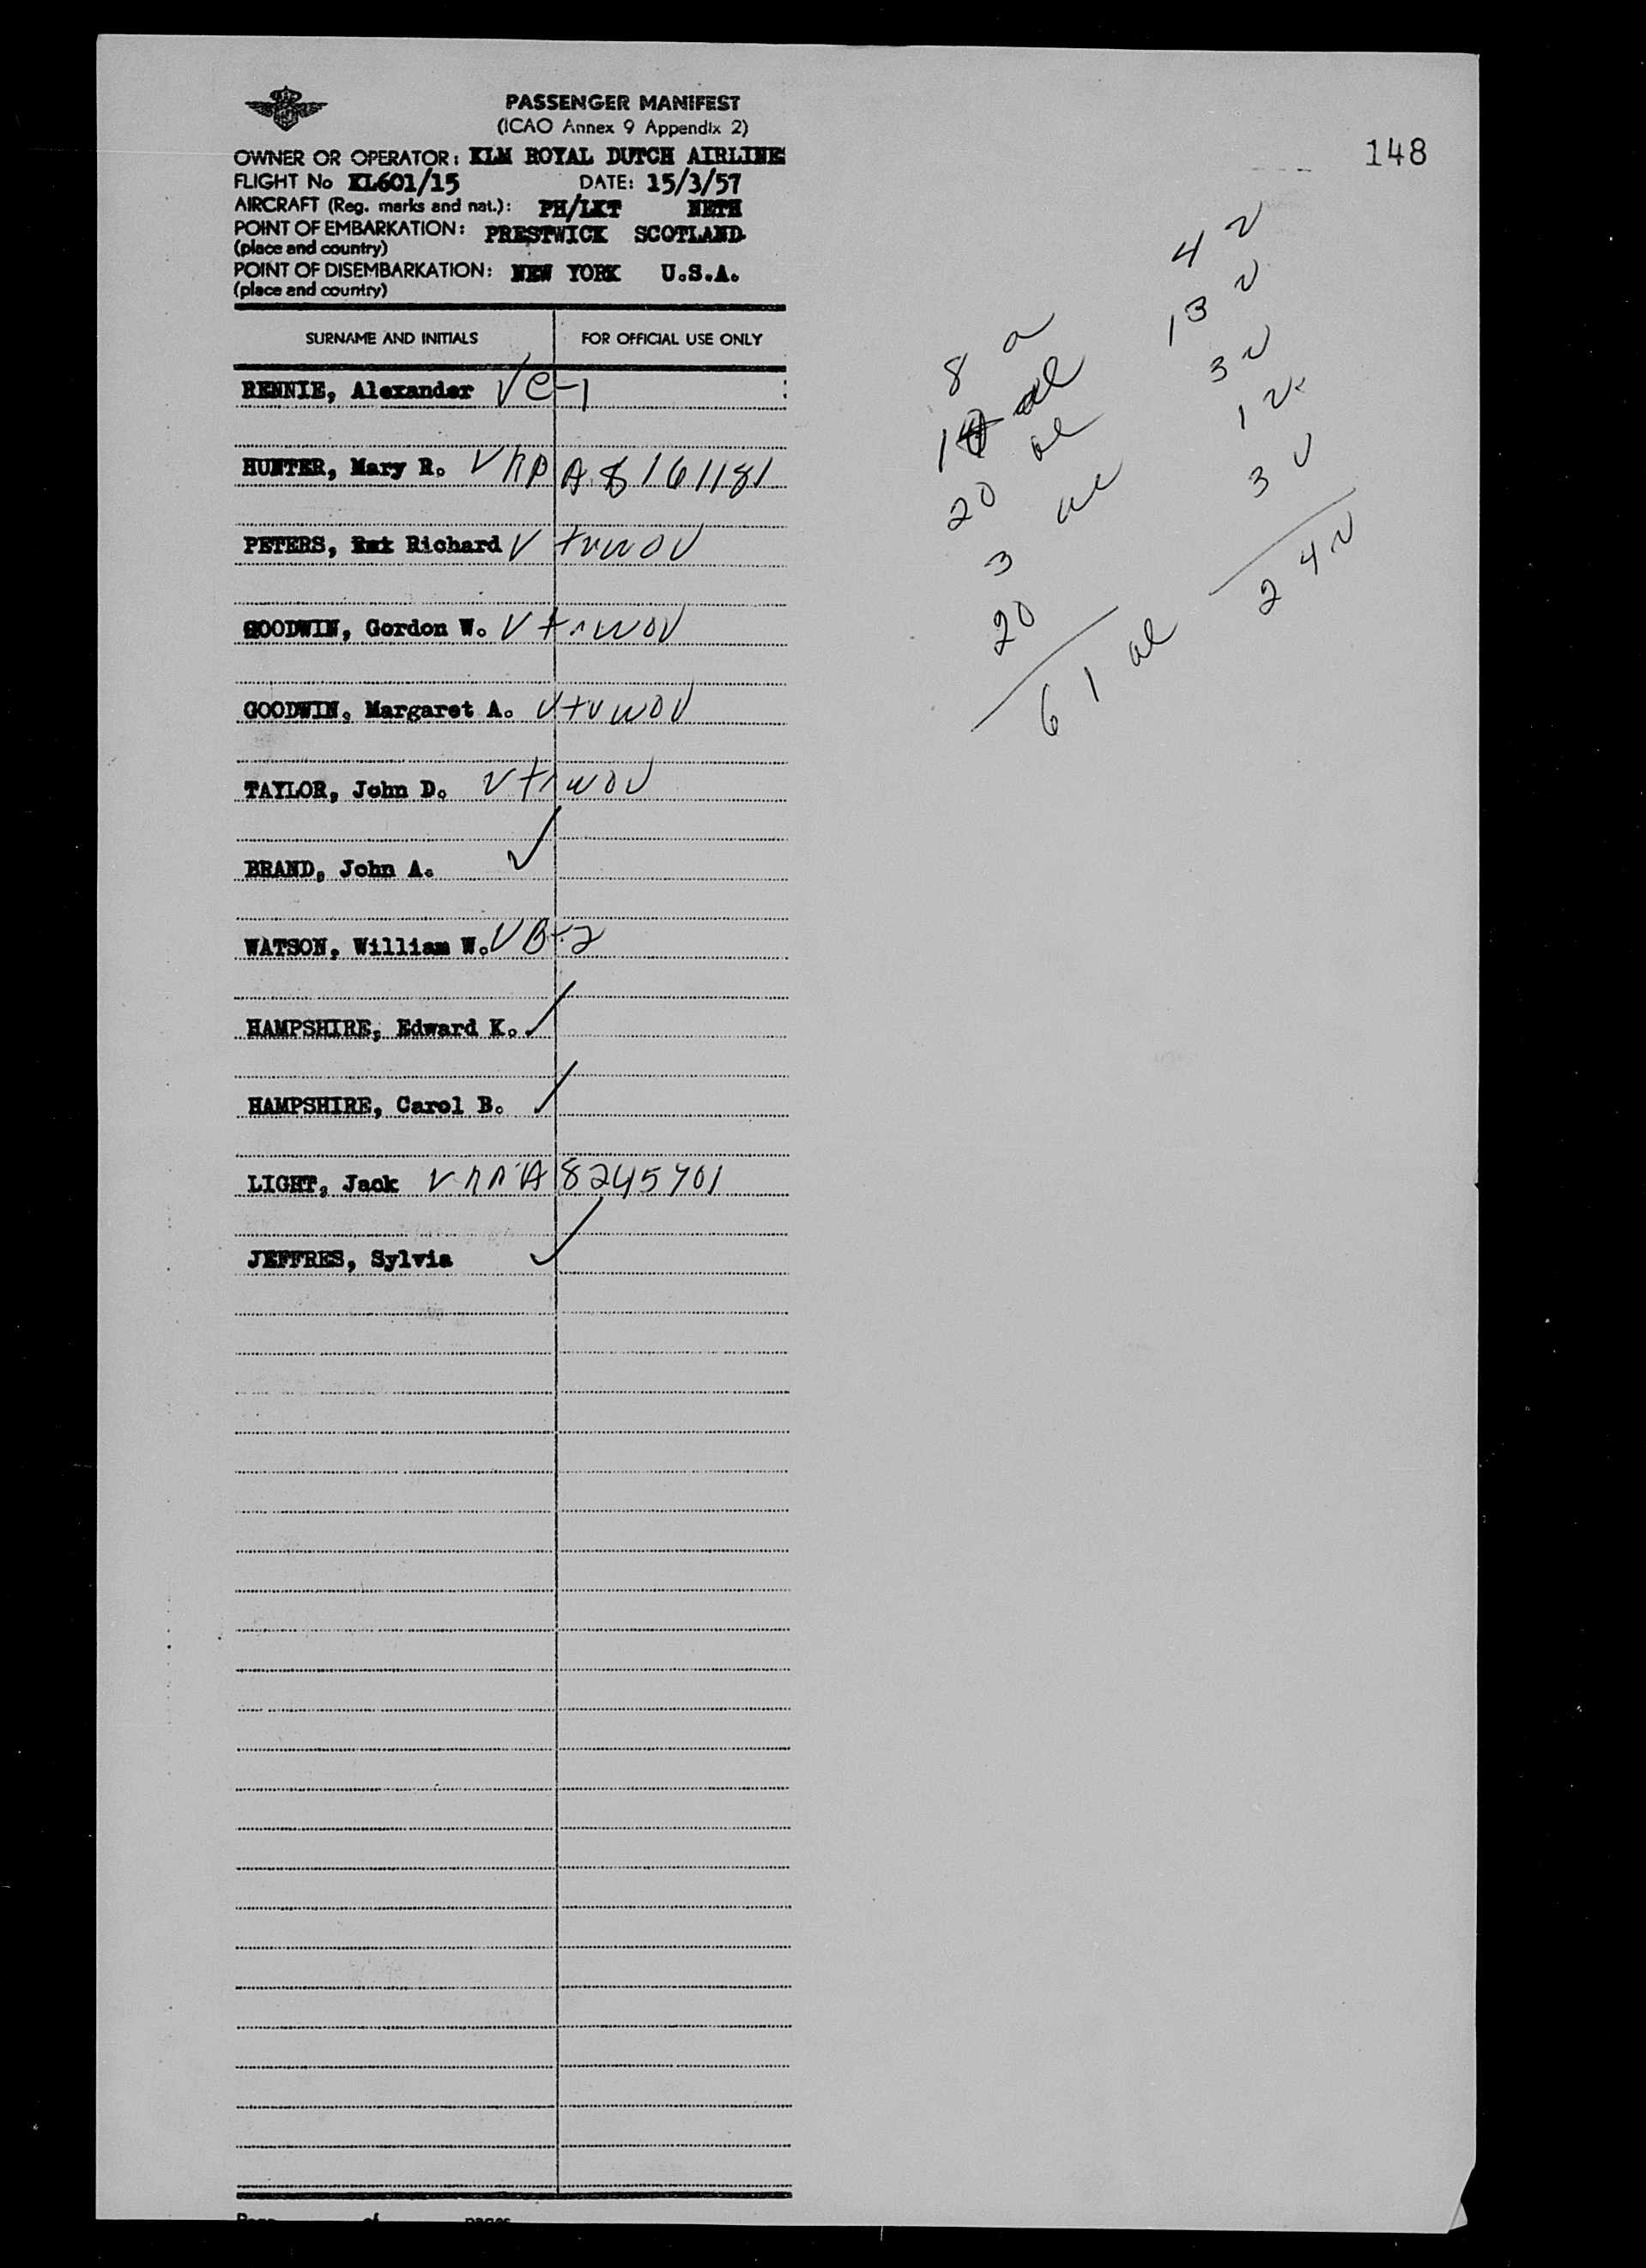 PASSENGER MANIFEST
(ICAO Annex 9 Appendix 2)
148
OWNER OR OPERATOR: KLM ROYAL DUTCH AIRLINES
FLIGHT No KL601/15 DATE: 15/3/57
AIRCRAFT (Reg. marks and nat.): PH/LKT NETH
POINT OF EMBARKATION: PRESTWICK SCOTLAND
(place and country)
POINT OF DISEMBARKATION: NEW YORK U.S.A.
(place and country)
SURNAME AND INITIALS FOR OFFICIAL USE ONLY
RENNIE, Alexander C-1
HUNTER, Mary R. A 8161181
PETERS, Richard
GOODWIN, Gordon W.
GOODWIN, Margaret A.
TAYLOR, John D.
BRAND, John A.
WATSON, William W. B-2
HAMPSHIRE, Edward K.
HAMPSHIRE, Carol B.
LIGHT, Jack A 8245701
JEFFRES, Sylvia
8
20
3
20
61
4
13
3
1
3
24
Page of pages